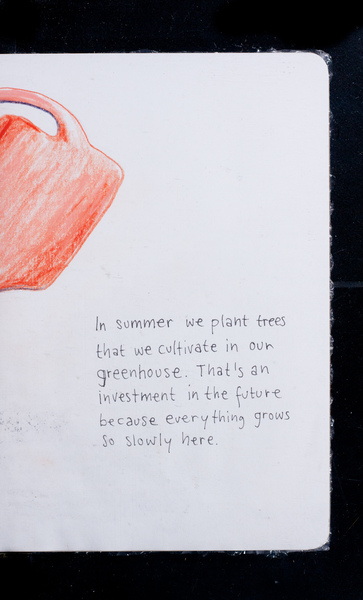 In summer we plant trees
that we cultivate in our
greenhouse. That's an
investment in the future
because everything grows
so slowly here.